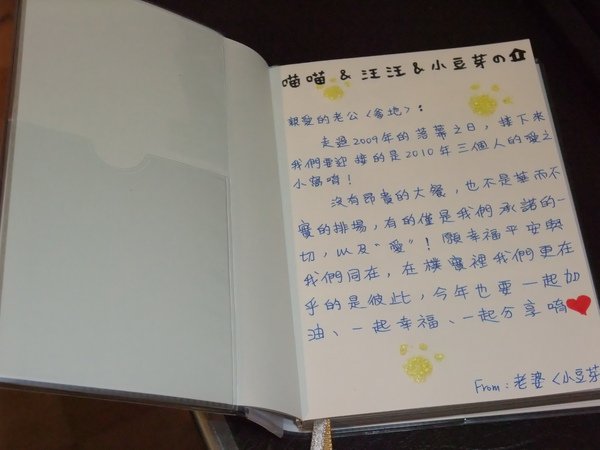 喵喵 & 汪汪 & 小豆芽の
親愛的老公〈爸地〉:
走過2009年的落幕之日,接下來
我們要迎接的是2010年三個人的愛之
小窩唷!
沒有昂貴的大餐,也不是華而不
實的排場,有的僅是我們承諾的一
切,以及“愛”! 願幸福平安與
我們同在,在樸實裡我們更在
乎的是彼此,今年也要一起加
油、一起幸福、一起分享唷
From: 老婆〈小豆芽